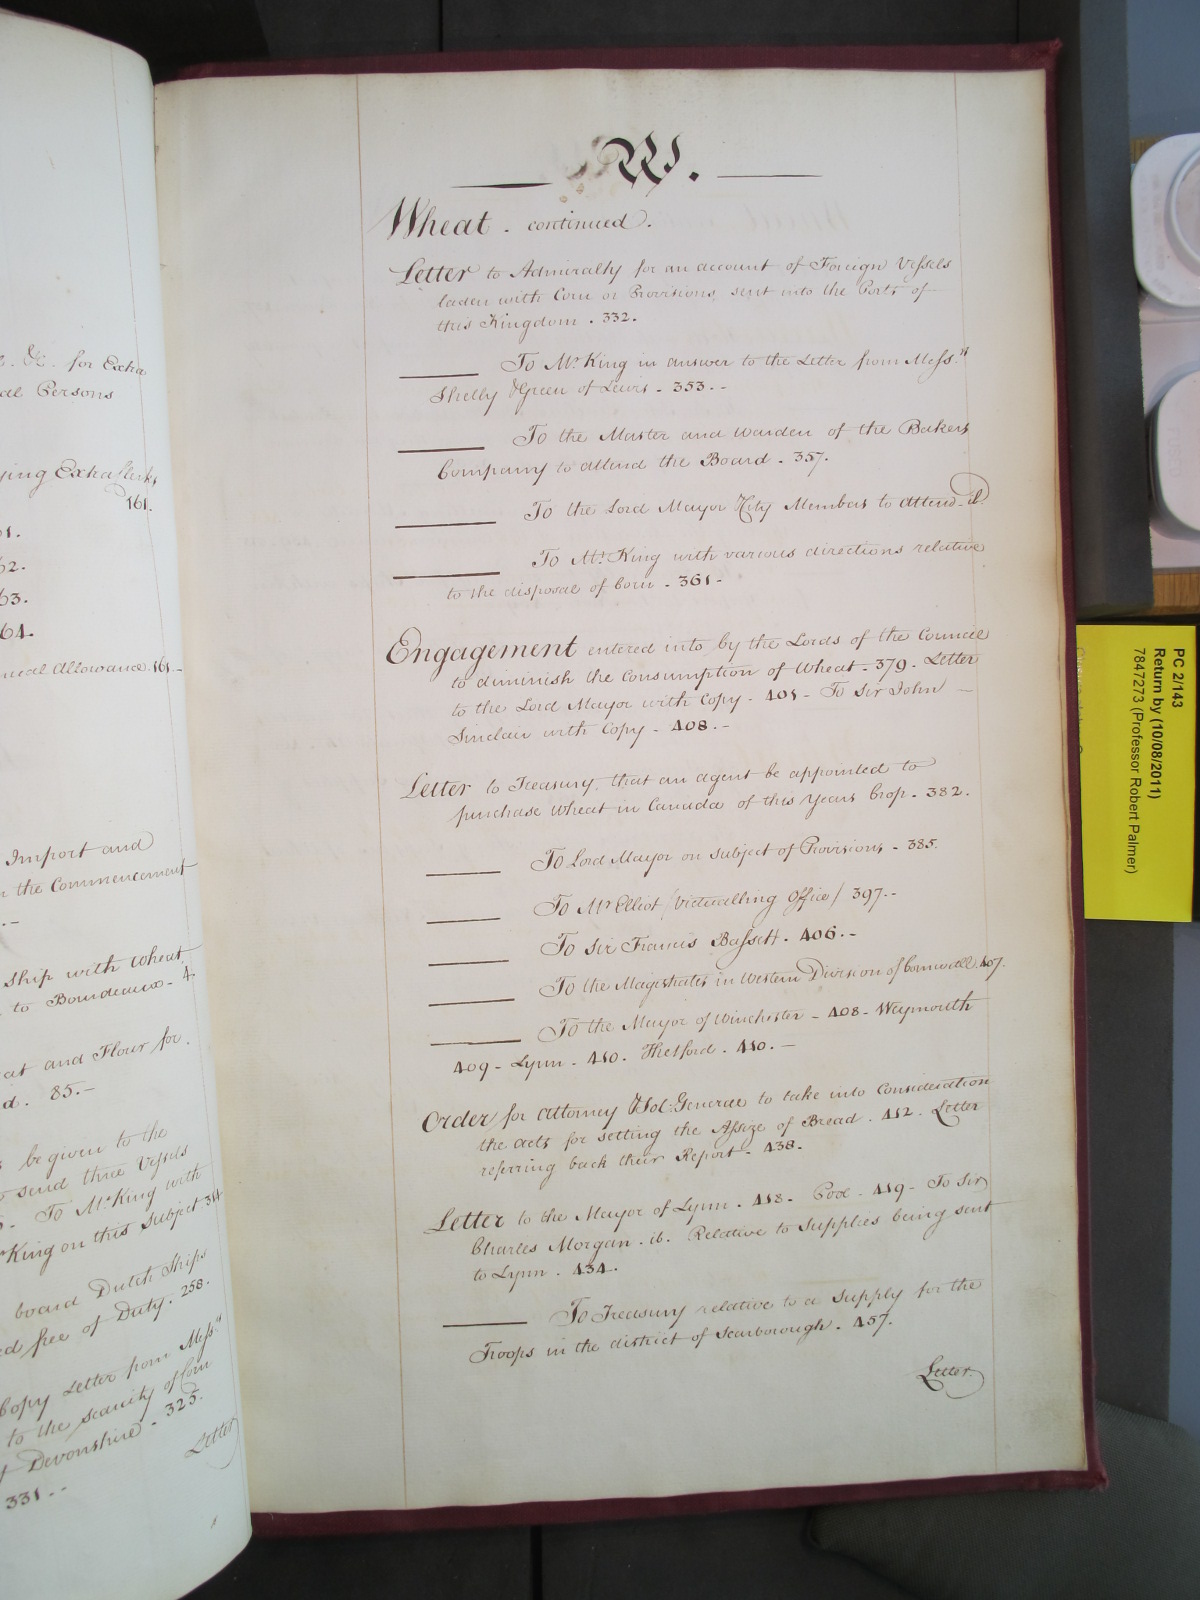 . &c. for Extra
al Persons
ying Extra Clerks
161.
1.
62.
63.
64.
nual Allowance. 161.-
Import and
n the Commencement
.-
Ship with Wheat
to Bourdeaux - 4.
at and Flour for
d. 85.-
be given to the
send three Vessels
To Mr King with
King on this Subject 314
board Dutch Ships
ed free of Duty. 258.
Copy Letter from Messrs
to the scarcity of Corn
f Devonshire - 325.
Letter
331 --
W.
Wheat. continued.
Letter to Admiralty for an account of Foreign Vessels
laden with Corn or Provisions, sent into the Ports of
this Kingdom. 332.
To Mr King in answer to the Letter from Messrs
Shelly & Green of Lewis - 353.-
To the Master and Warden of the Bakers
Company to attend the Board - 357.
To the Lord Mayor & City Members to attend - id.
To Mr King with various directions relative
to the disposal of Corn - 361-
Engagement entered into by the Lords of the Council
to diminish the Consumption of Wheat - 379. Letter
to the Lord Mayor with Copy - 401 - To Sir John -
Sinclair with Copy - 408.-
Letter to Treasury, that an agent be appointed to
purchase Wheat in Canada of this Years Crop. 382.
To Lord Mayor on subject of Provisions - 385.
To Mr Elliot / Victualling Office / 397.-
To Sir Francis Bassett. 406.-
To the Magistrates in Western Division of Cornwall 407.
To the Mayor of Winchester - 408 - Weymouth
409 - Lynn - 410. Thetford. 410.-
Order for Attorney & Sol: General to take into Consideration
the acts for setting the Assize of Bread. 412. Letter
referring back their Report - 438.
Letter to the Mayor of Lynn. 418 - Pool - 419 - To Sir
Charles Morgan. ib. Relative to Supplies being sent
to Lynn. 434.
To Treasury relative to a Supply for the
Troops in the district of Scarborough. 457.
Letter.
PC 2/143
Return by (10/08/2011)
7847273 (Professor Robert Palmer)